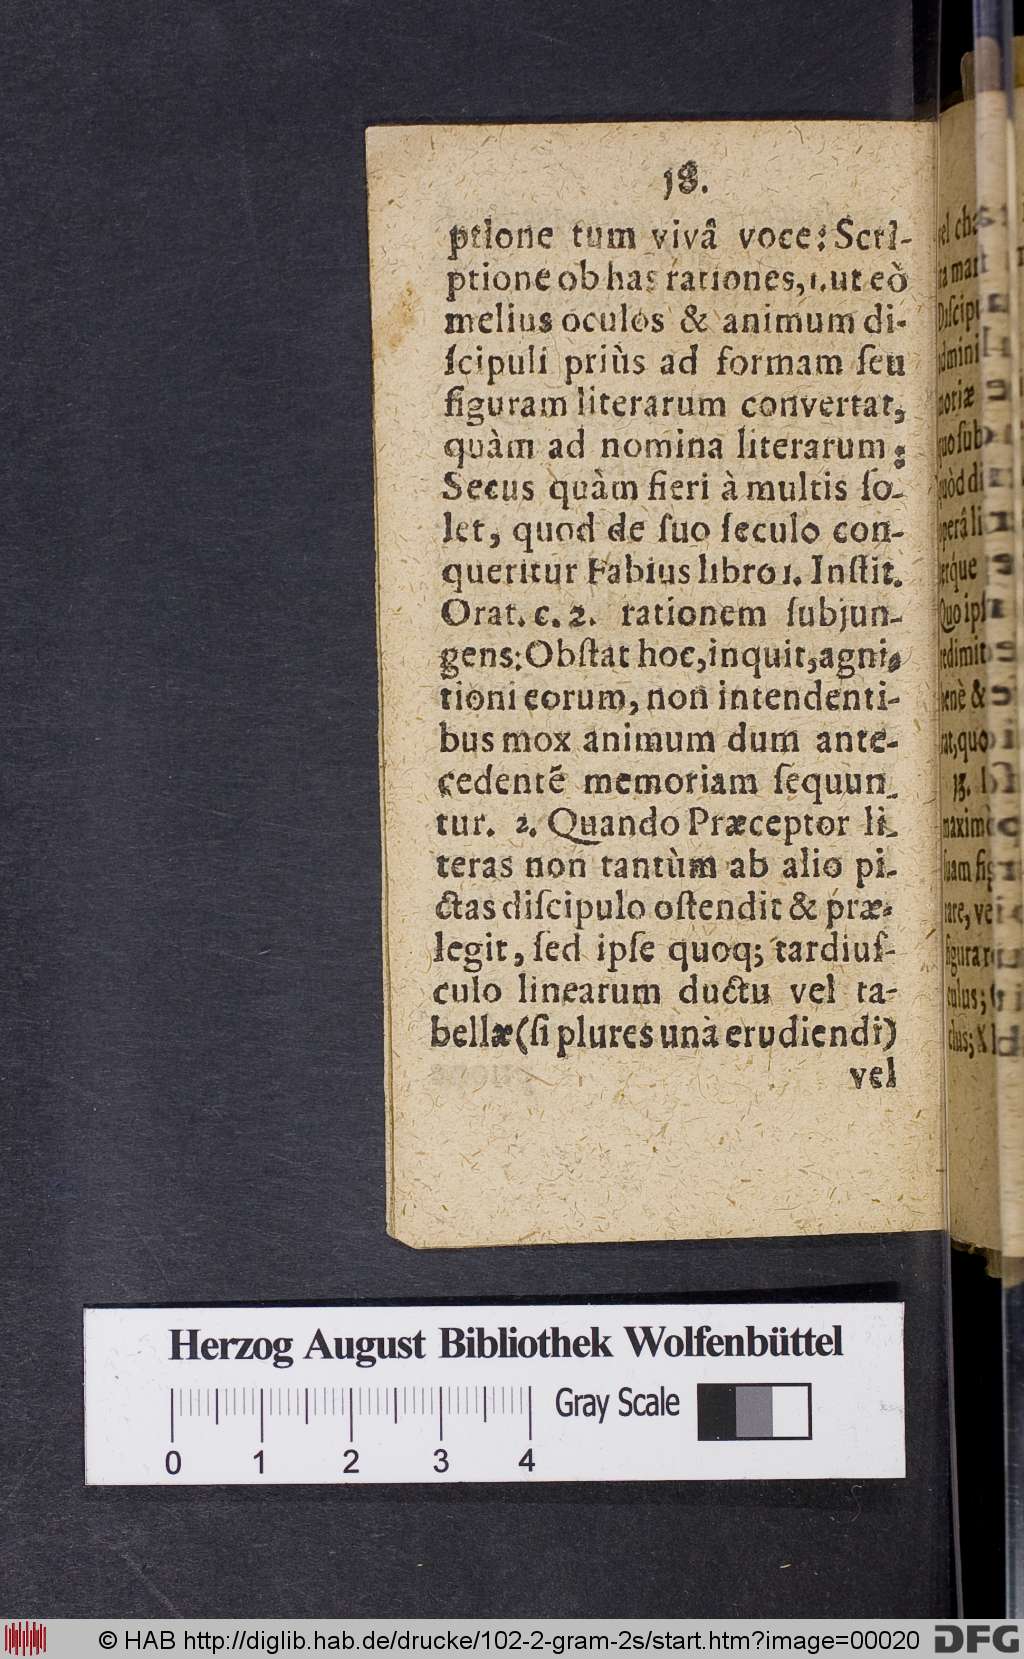 18.
ptione tum vivâ voce: Scri-
ptione ob has rationes, 1. ut eò
melius oculos & animum di-
ſcipuli priùs ad formam ſeu
figuram literarum convertat,
quàm ad nomina literarum:
Secus quàm fieri à multis ſo-
let, quod de ſuo ſeculo con-
queritur Fabius libro 1. Inſtit.
Orat. c. 2. rationem ſubjun-
gens: Obſtat hoc, inquit, agni-
tioni eorum, non intendenti-
bus mox animum dum ante-
cedentē memoriam ſequun-
tur. 2. Quando Præceptor li-
teras non tantùm ab alio pi-
ctas diſcipulo oſtendit & præ-
legit, ſed ipſe quoq; tardiuſ-
culo linearum ductu vel ta-
bellæ (ſi plures unà erudiendi)
vel
Herzog August Bibliothek Wolfenbüttel
Gray Scale
0 1 2 3 4
© HAB http://diglib.hab.de/drucke/102-2-gram-2s/start.htm?image=00020
DFG